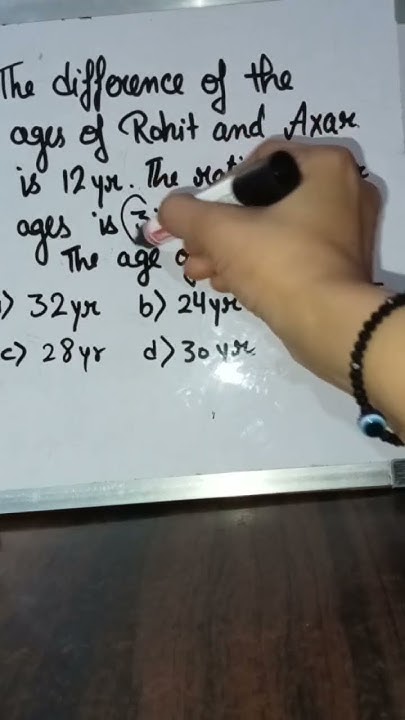 The difference of the
ages of Rohit and Axar
is 12 yr. The
ages is
The age
32yr b) 24yr
c) 28yr d) 30 yr.